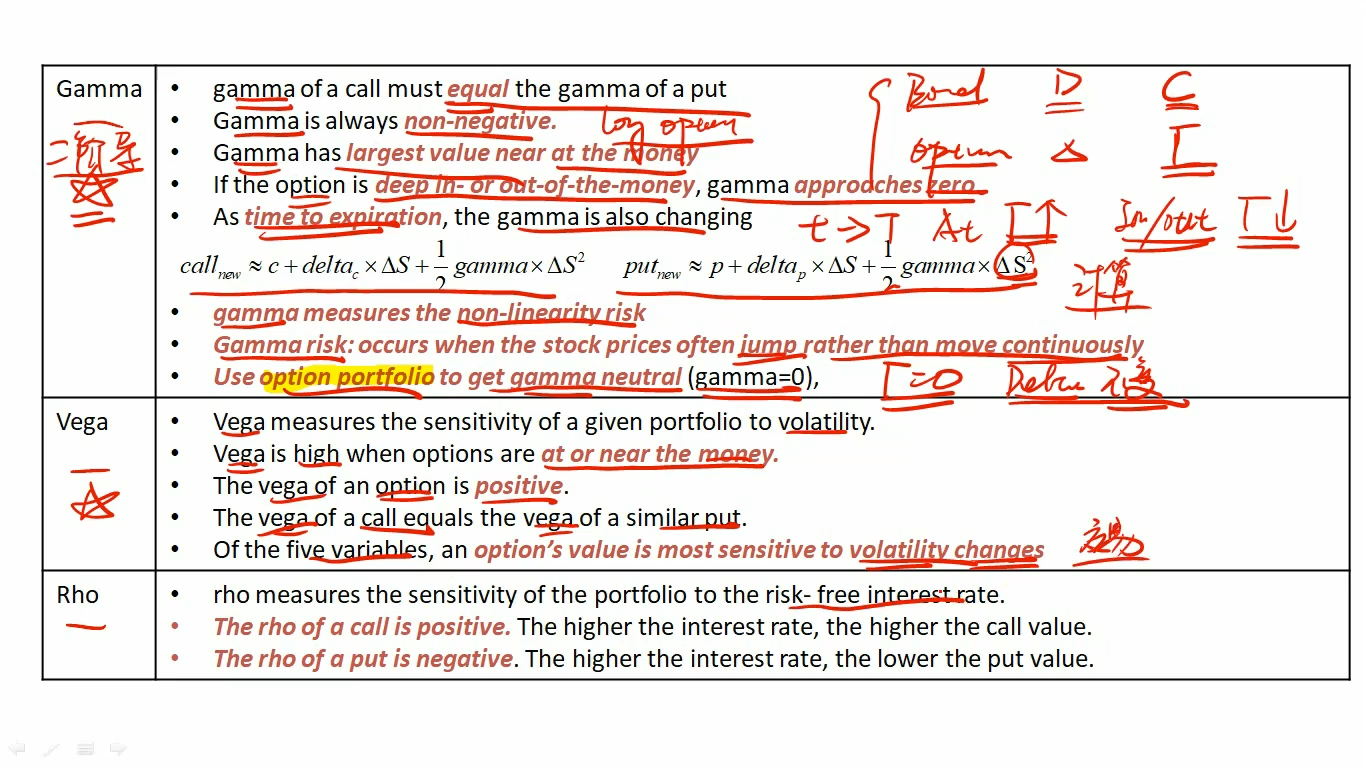 Gamma
二阶导
• gamma of a call must equal the gamma of a put
• Gamma is always non-negative. long option
• Gamma has largest value near at the money
• If the option is deep in- or out-of-the-money, gamma approaches zero
• As time to expiration, the gamma is also changing
Bond D C
option Δ Γ
t→T At Γ↑ In/out Γ↓
call_new ≈ c + delta_c × ΔS + 1/2 gamma × ΔS² put_new ≈ p + delta_p × ΔS + 1/2 gamma × ΔS²
计算
• gamma measures the non-linearity risk
• Gamma risk: occurs when the stock prices often jump rather than move continuously
• Use option portfolio to get gamma neutral (gamma=0), Γ=0
Vega
• Vega measures the sensitivity of a given portfolio to volatility.
• Vega is high when options are at or near the money.
• The vega of an option is positive.
• The vega of a call equals the vega of a similar put.
• Of the five variables, an option's value is most sensitive to volatility changes
Rho
• rho measures the sensitivity of the portfolio to the risk- free interest rate.
• The rho of a call is positive. The higher the interest rate, the higher the call value.
• The rho of a put is negative. The higher the interest rate, the lower the put value.